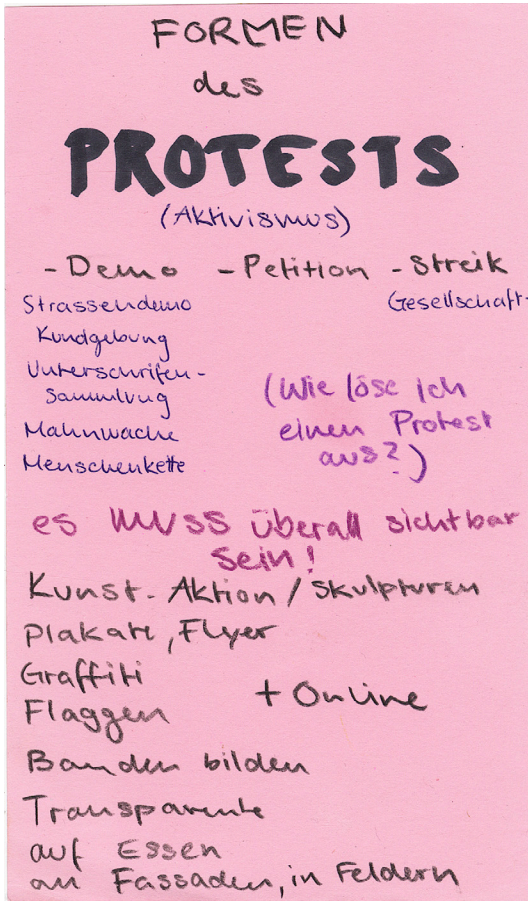 FORMEN
des
PROTESTS
(Aktivismus)
- Demo - Petition - Streik
Strassendemo Gesellschaft-
Kundgebung
Unterschriften-
Sammlung
Mahnwache
Menschenkette
(Wie löse ich
einen Protest
aus?)
es MUSS überall sichtbar
sein!
Kunst-Aktion / Skulpturen
Plakate, Flyer
Graffiti
+ Online
Flaggen
Banden bilden
Transparente
auf Essen
an Fassaden, in Feldern